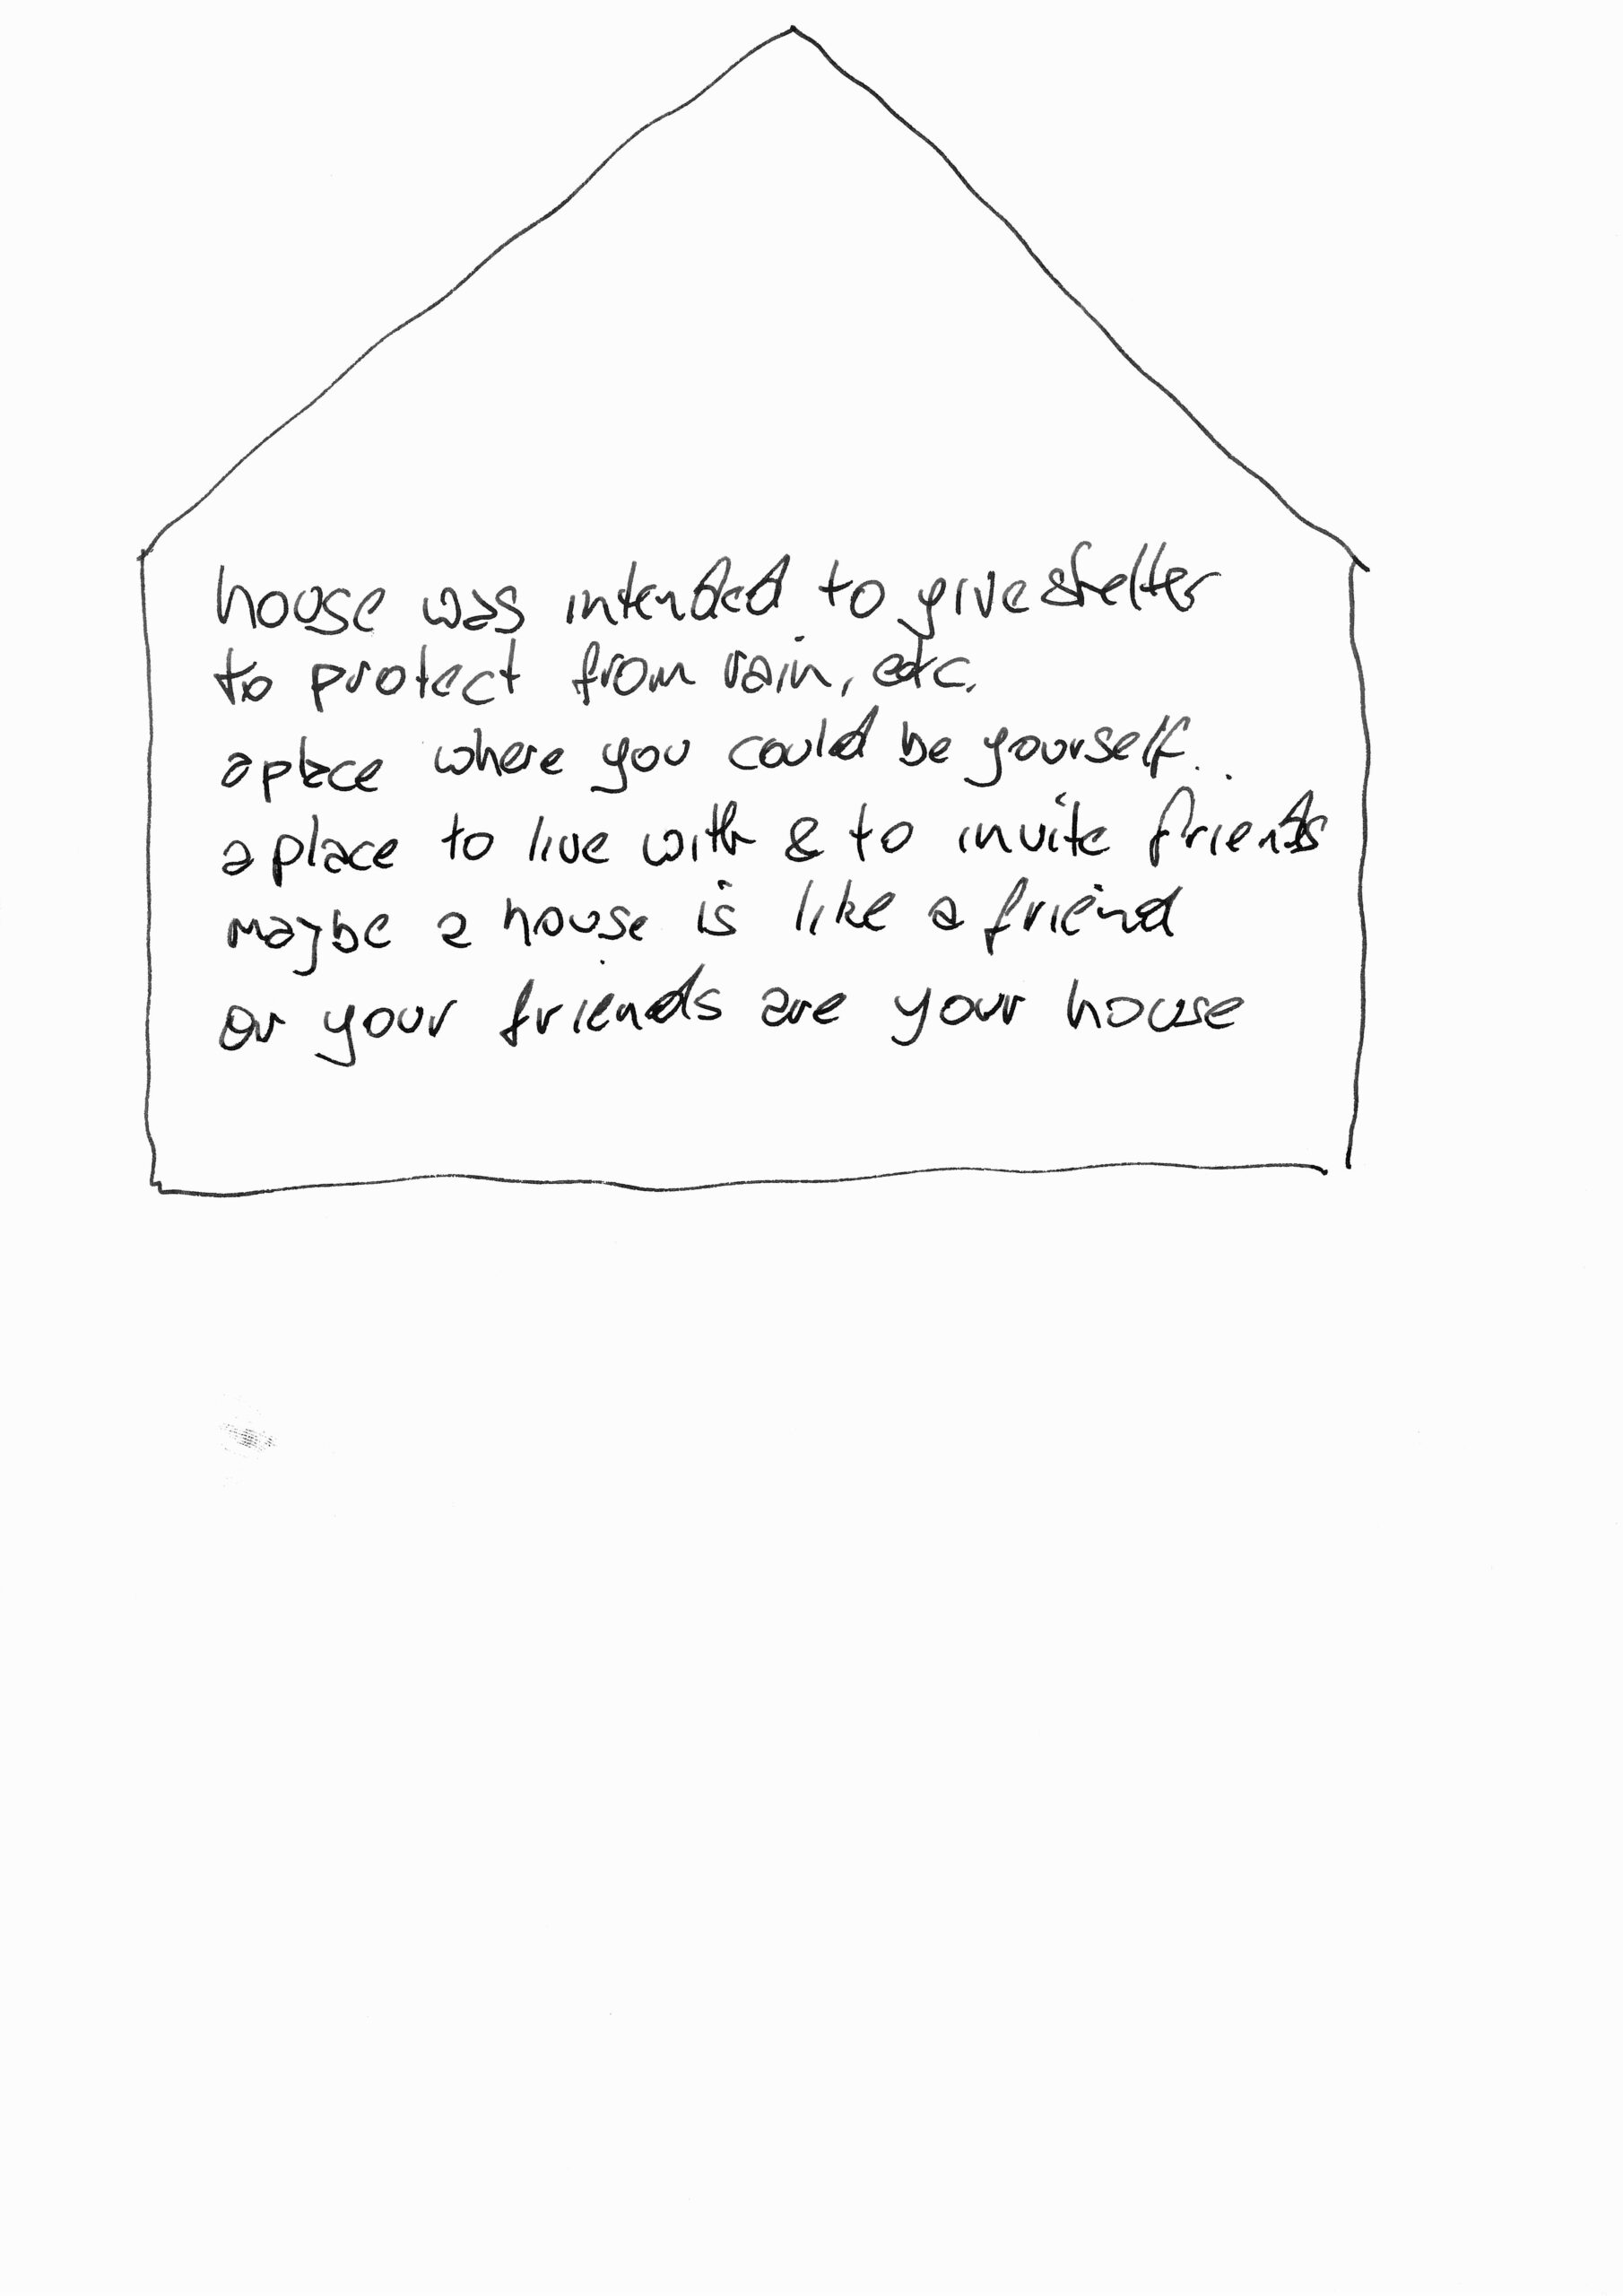 house was intended to give shelter
to protect from rain, etc.
a place where you could be yourself..
a place to live with & to invite friends
maybe a house is like a friend
or your friends are your house